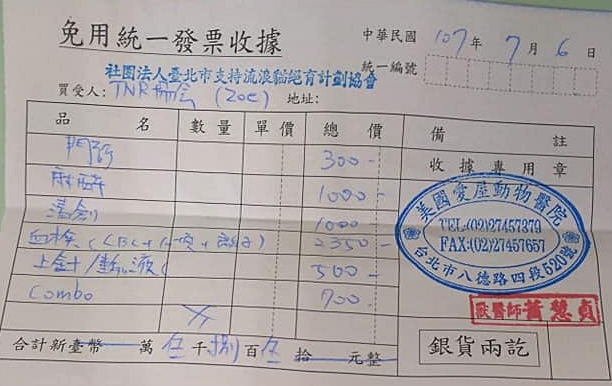 免用統一發票收據
中華民國 107 年 7 月 6 日
社團法人臺北市支持流浪貓絕育計劃協會
統一編號
買受人: TNR (Zoe) 地址:
品 名 數量 單價 總 價 備 註
門診 300-
收據專用章
麻醉 1000-
清創 1000-
血檢 (CBC+ 項+ ) 2350-
上針/輸液 500-
Combo 700-
美國愛屋動物醫院
TEL:(02)27457379
FAX:(02)27457657
台北市八德路四段520號
獸醫師黃慧貞
合計新臺幣 萬 伍 千 捌 百 伍 拾 元整
銀貨兩訖